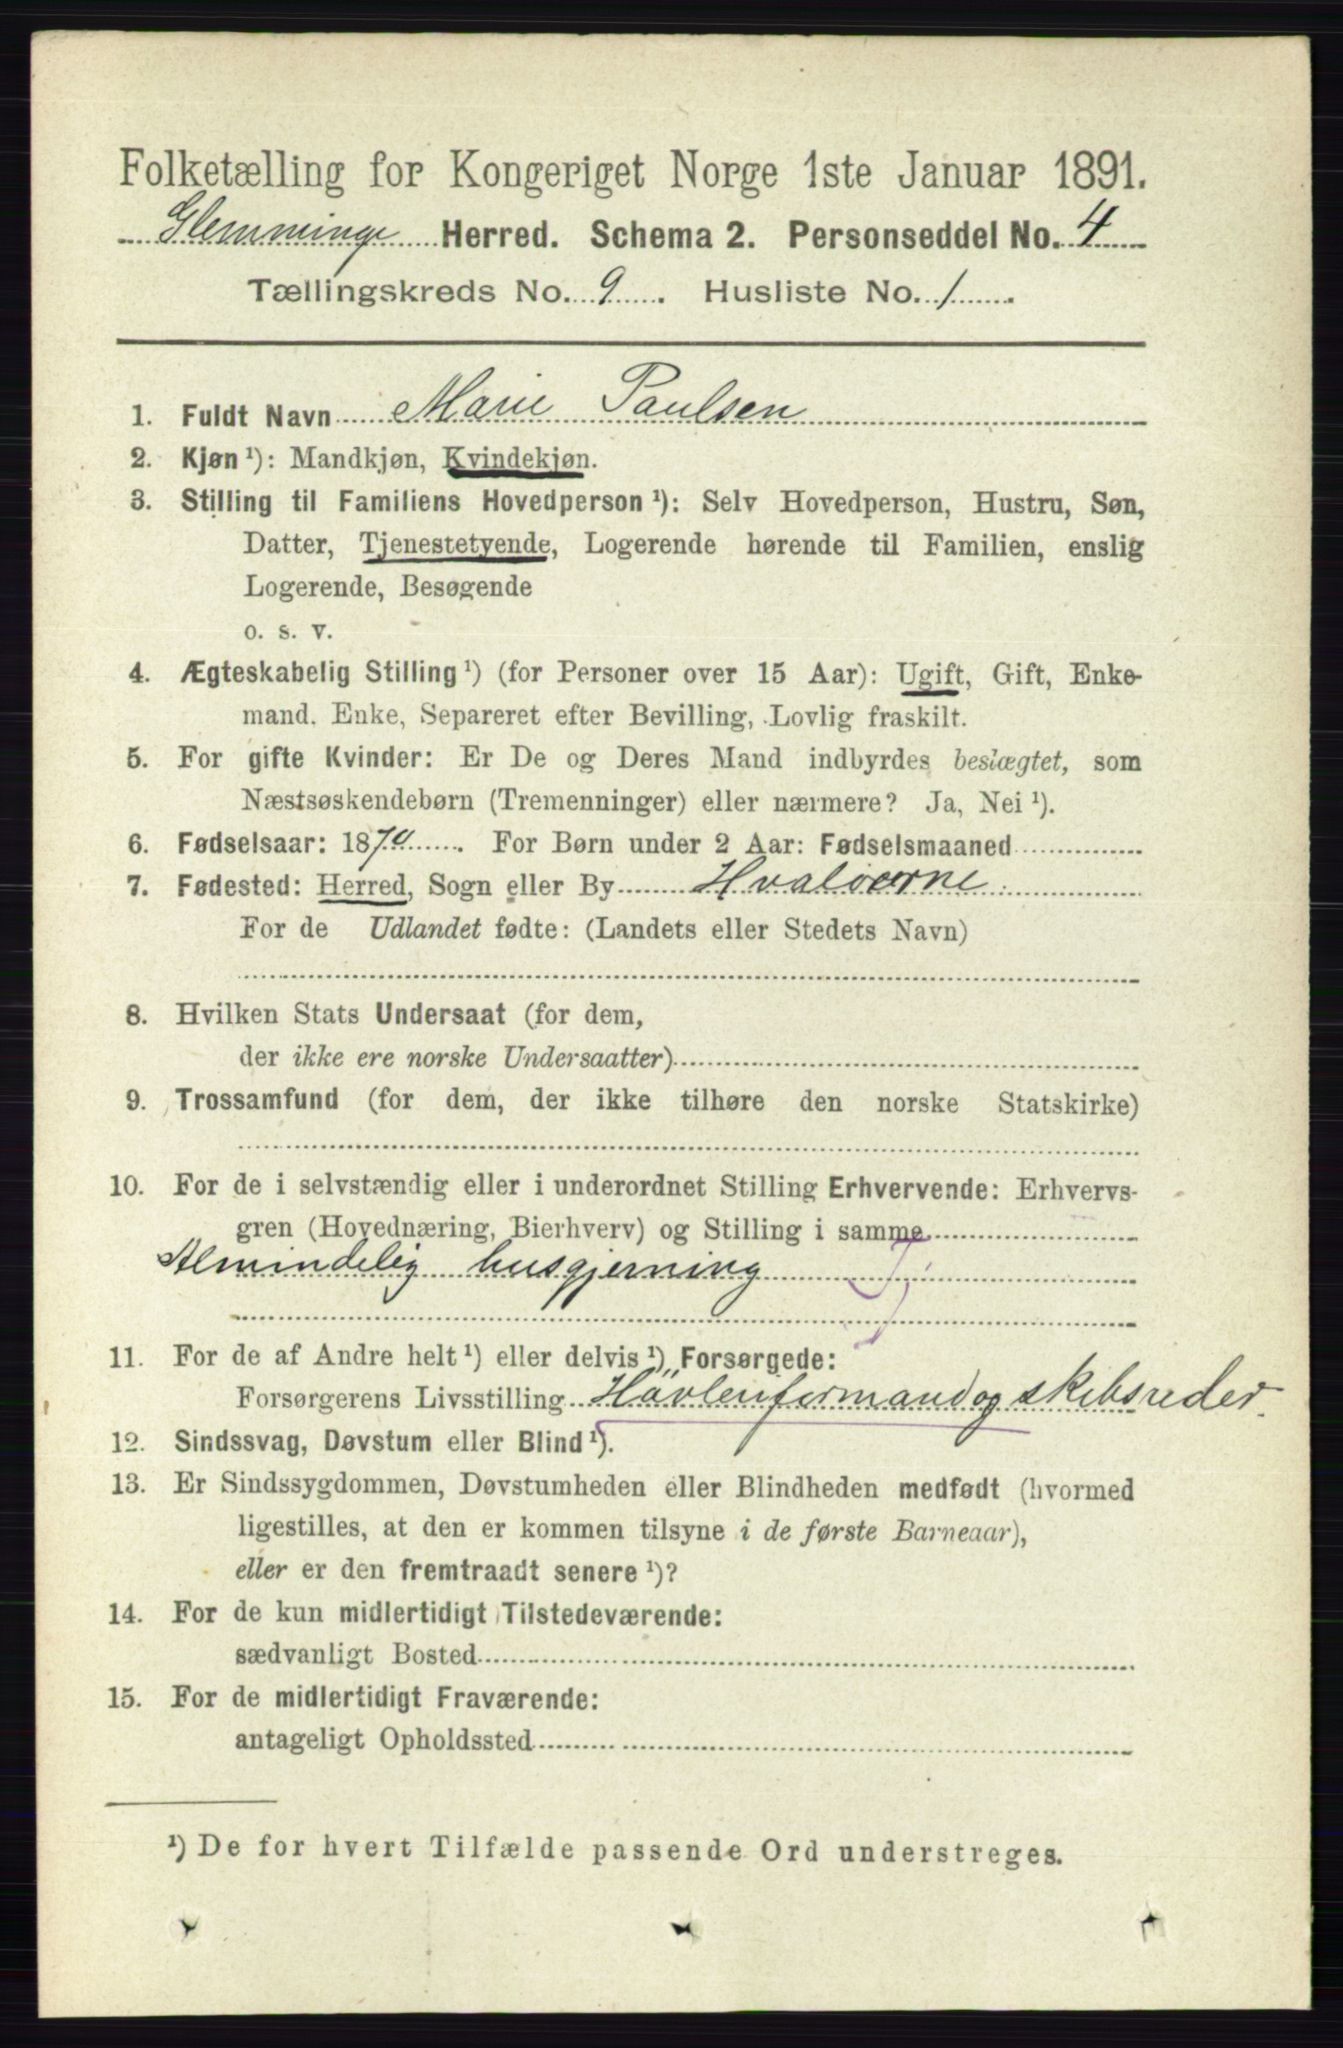 Folketælling for Kongeriget Norge 1ste Januar 1891.
Glemminge Herred. Schema 2. Personseddel No. 4
Tællingskreds No. 9. Husliste No. 1.
1. Fuldt Navn Marie Paulsen
2. Kjøn ¹): Mandkjøn, Kvindekjøn.
3. Stilling til Familiens Hovedperson ¹): Selv Hovedperson, Hustru, Søn,
Datter, Tjenestetyende, Logerende hørende til Familien, enslig
Logerende, Besøgende
o. s. v.
4. Ægteskabelig Stilling ¹) (for Personer over 15 Aar): Ugift, Gift, Enke-
mand, Enke, Separeret efter Bevilling, Lovlig fraskilt.
5. For gifte Kvinder: Er De og Deres Mand indbyrdes beslægtet, som
Næstsøskendebørn (Tremenninger) eller nærmere? Ja, Nei ¹).
6. Fødselsaar: 1870. For Børn under 2 Aar: Fødselsmaaned
7. Fødested: Herred, Sogn eller By Hvaløerne
For de Udlandet fødte: (Landets eller Stedets Navn)
8. Hvilken Stats Undersaat (for dem,
der ikke ere norske Undersaatter)
9. Trossamfund (for dem, der ikke tilhøre den norske Statskirke)
10. For de i selvstændig eller i underordnet Stilling Erhvervende: Erhvervs-
gren (Hovednæring, Bierhverv) og Stilling i samme
Almindelig husgjerning
11. For de af Andre helt ¹) eller delvis ¹) Forsørgede:
Forsørgerens Livsstilling Høvleriformand og skibsreder.
12. Sindssvag, Døvstum eller Blind ¹).
13. Er Sindssygdommen, Døvstumheden eller Blindheden medfødt (hvormed
ligestilles, at den er kommen tilsyne i de første Barneaar),
eller er den fremtraadt senere ¹)?
14. For de kun midlertidigt Tilstedeværende:
sædvanligt Bosted
15. For de midlertidigt Fraværende:
antageligt Opholdssted
¹) De for hvert Tilfælde passende Ord understreges.